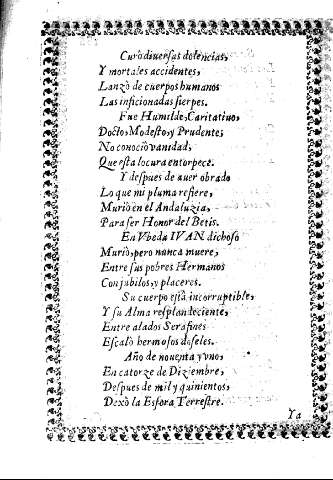 Curò diuersas dolencias,
Y mortales accidentes,
Lanzò de cuerpos humanos
Las inficionadas sierpes.
Fue Humilde, Caritatiuo,
Docto, Modesto, y Prudente,
No conocio vanidad,
Que esta locura entorpece.
Y despues de auer obrado
Lo que mi pluma refiere,
Murio en el Andaluzia,
Para ser Honor del Betis.
En Vbeda IVAN dichoso
Murio, pero nunca muere,
Entre sus pobres Hermanos
Con jubilos, y placeres.
Su cuerpo està incorruptible,
Y su Alma resplandeciente,
Entre alados Serafines
Escalò hermosos doseles.
Año de nouenta y vno,
En catorze de Diziembre,
Despues de mil y quinientos,
Dexò la Esfera Terrestre.
Ya